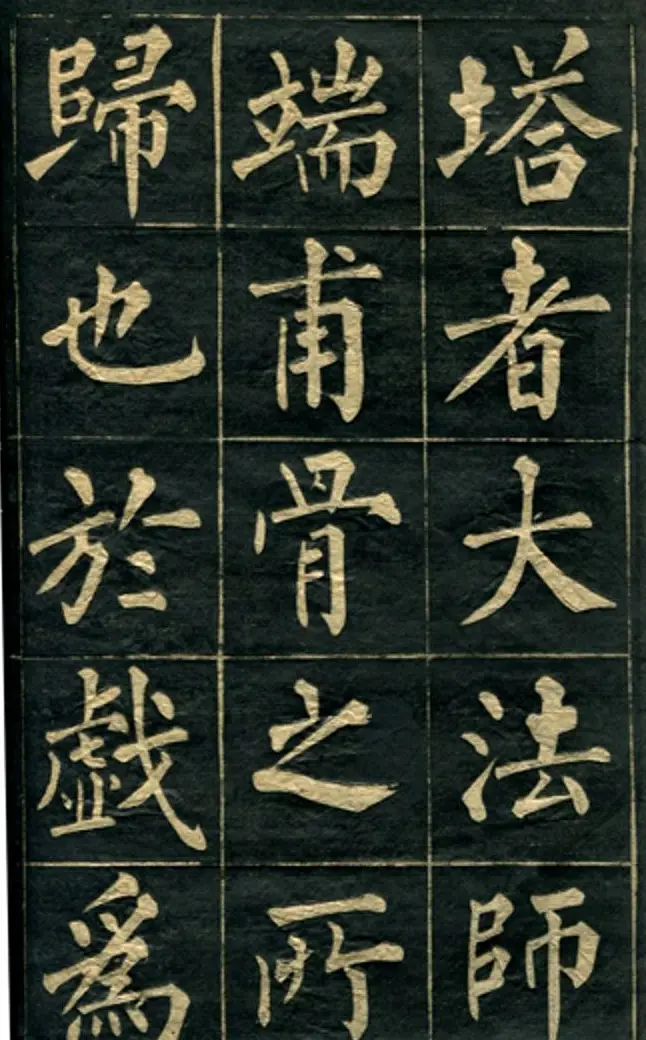 塔者大法師
端甫骨之所
歸也於戱為